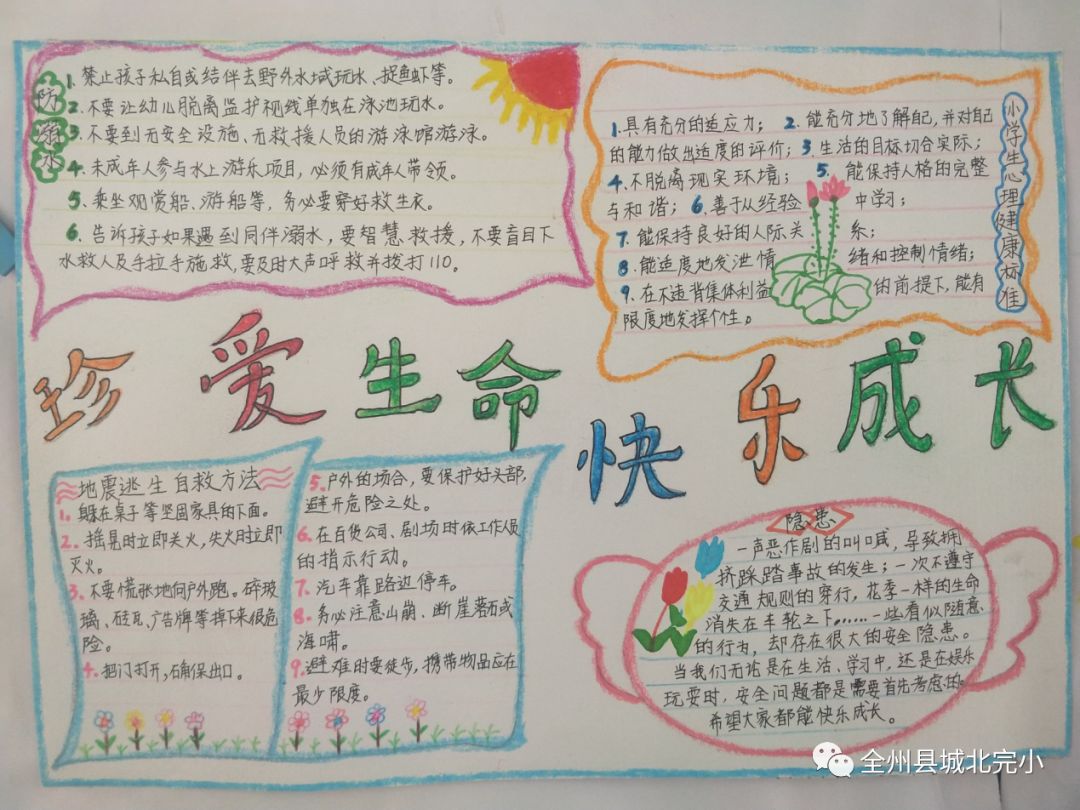 防溺水
1. 禁止孩子私自或结伴去野外水域玩水、捉鱼虾等。
2. 不要让幼儿脱离监护视线单独在泳池玩水。
3. 不要到无安全设施、无救援人员的游泳馆游泳。
4. 未成年人参与水上游乐项目，必须有成年人带领。
5. 乘坐观赏船、游船等，务必要穿好救生衣。
6. 告诉孩子如果遇到同伴溺水，要智慧救援，不要盲目下
水救人及手拉手施救，要及时大声呼救并拨打110。
小学生心理健康标准
1. 具有充分的适应力； 2. 能充分地了解自己，并对自己
的能力做出适度的评价；3. 生活的目标切合实际；
4. 不脱离现实环境； 5. 能保持人格的完整
与和谐； 6. 善于从经验中学习；
7. 能保持良好的人际关系；
8. 能适度地发泄情绪和控制情绪；
9. 在不违背集体利益的前提下，能有
限度地发挥个性。
珍爱生命
快乐成长
地震逃生自救方法
1. 躲在桌子等坚固家具的下面。
2. 摇晃时立即关火，失火时立即
灭火。
3. 不要慌张地向户外跑。碎玻
璃、砖瓦、广告牌等掉下来很危
险。
4. 把门打开，确保出口。
5. 户外的场合，要保护好头部，
避开危险之处。
6. 在百货公司、剧场时依工作人员
的指示行动。
7. 汽车靠路边停车。
8. 务必注意山崩、断崖落石或
海啸。
9. 避难时要徒步，携带物品应在
最少限度。
隐患
一声恶作剧的叫喊，导致拥
挤踩踏事故的发生；一次不遵守
交通规则的穿行，花季一样的生命
消失在车轮之下……一些看似随意
的行为，却存在很大的安全隐患。
当我们无论是在生活、学习中，还是在娱乐
玩耍时，安全问题都是需要首先考虑的。
希望大家都能快乐成长。
全州县城北完小